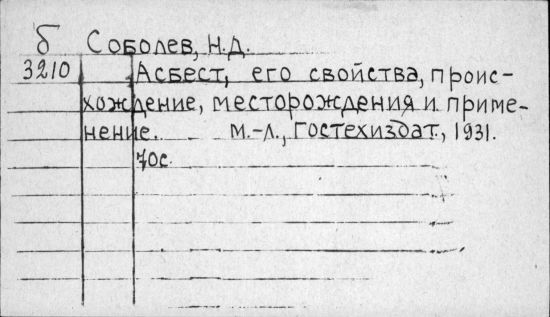 б Соболев, Н.Д.
3210 Асбест, его свойства, проис-
хождение, месторождения и приме-
нение. М.-Л., Гостехиздат, 1931.
70с.